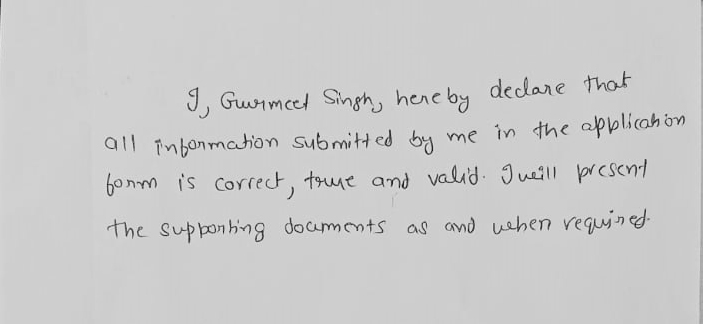 I, Gurmeet Singh, hereby declare that
all information submitted by me in the application
form is correct, true and valid. I will present
the supporting documents as and when required.